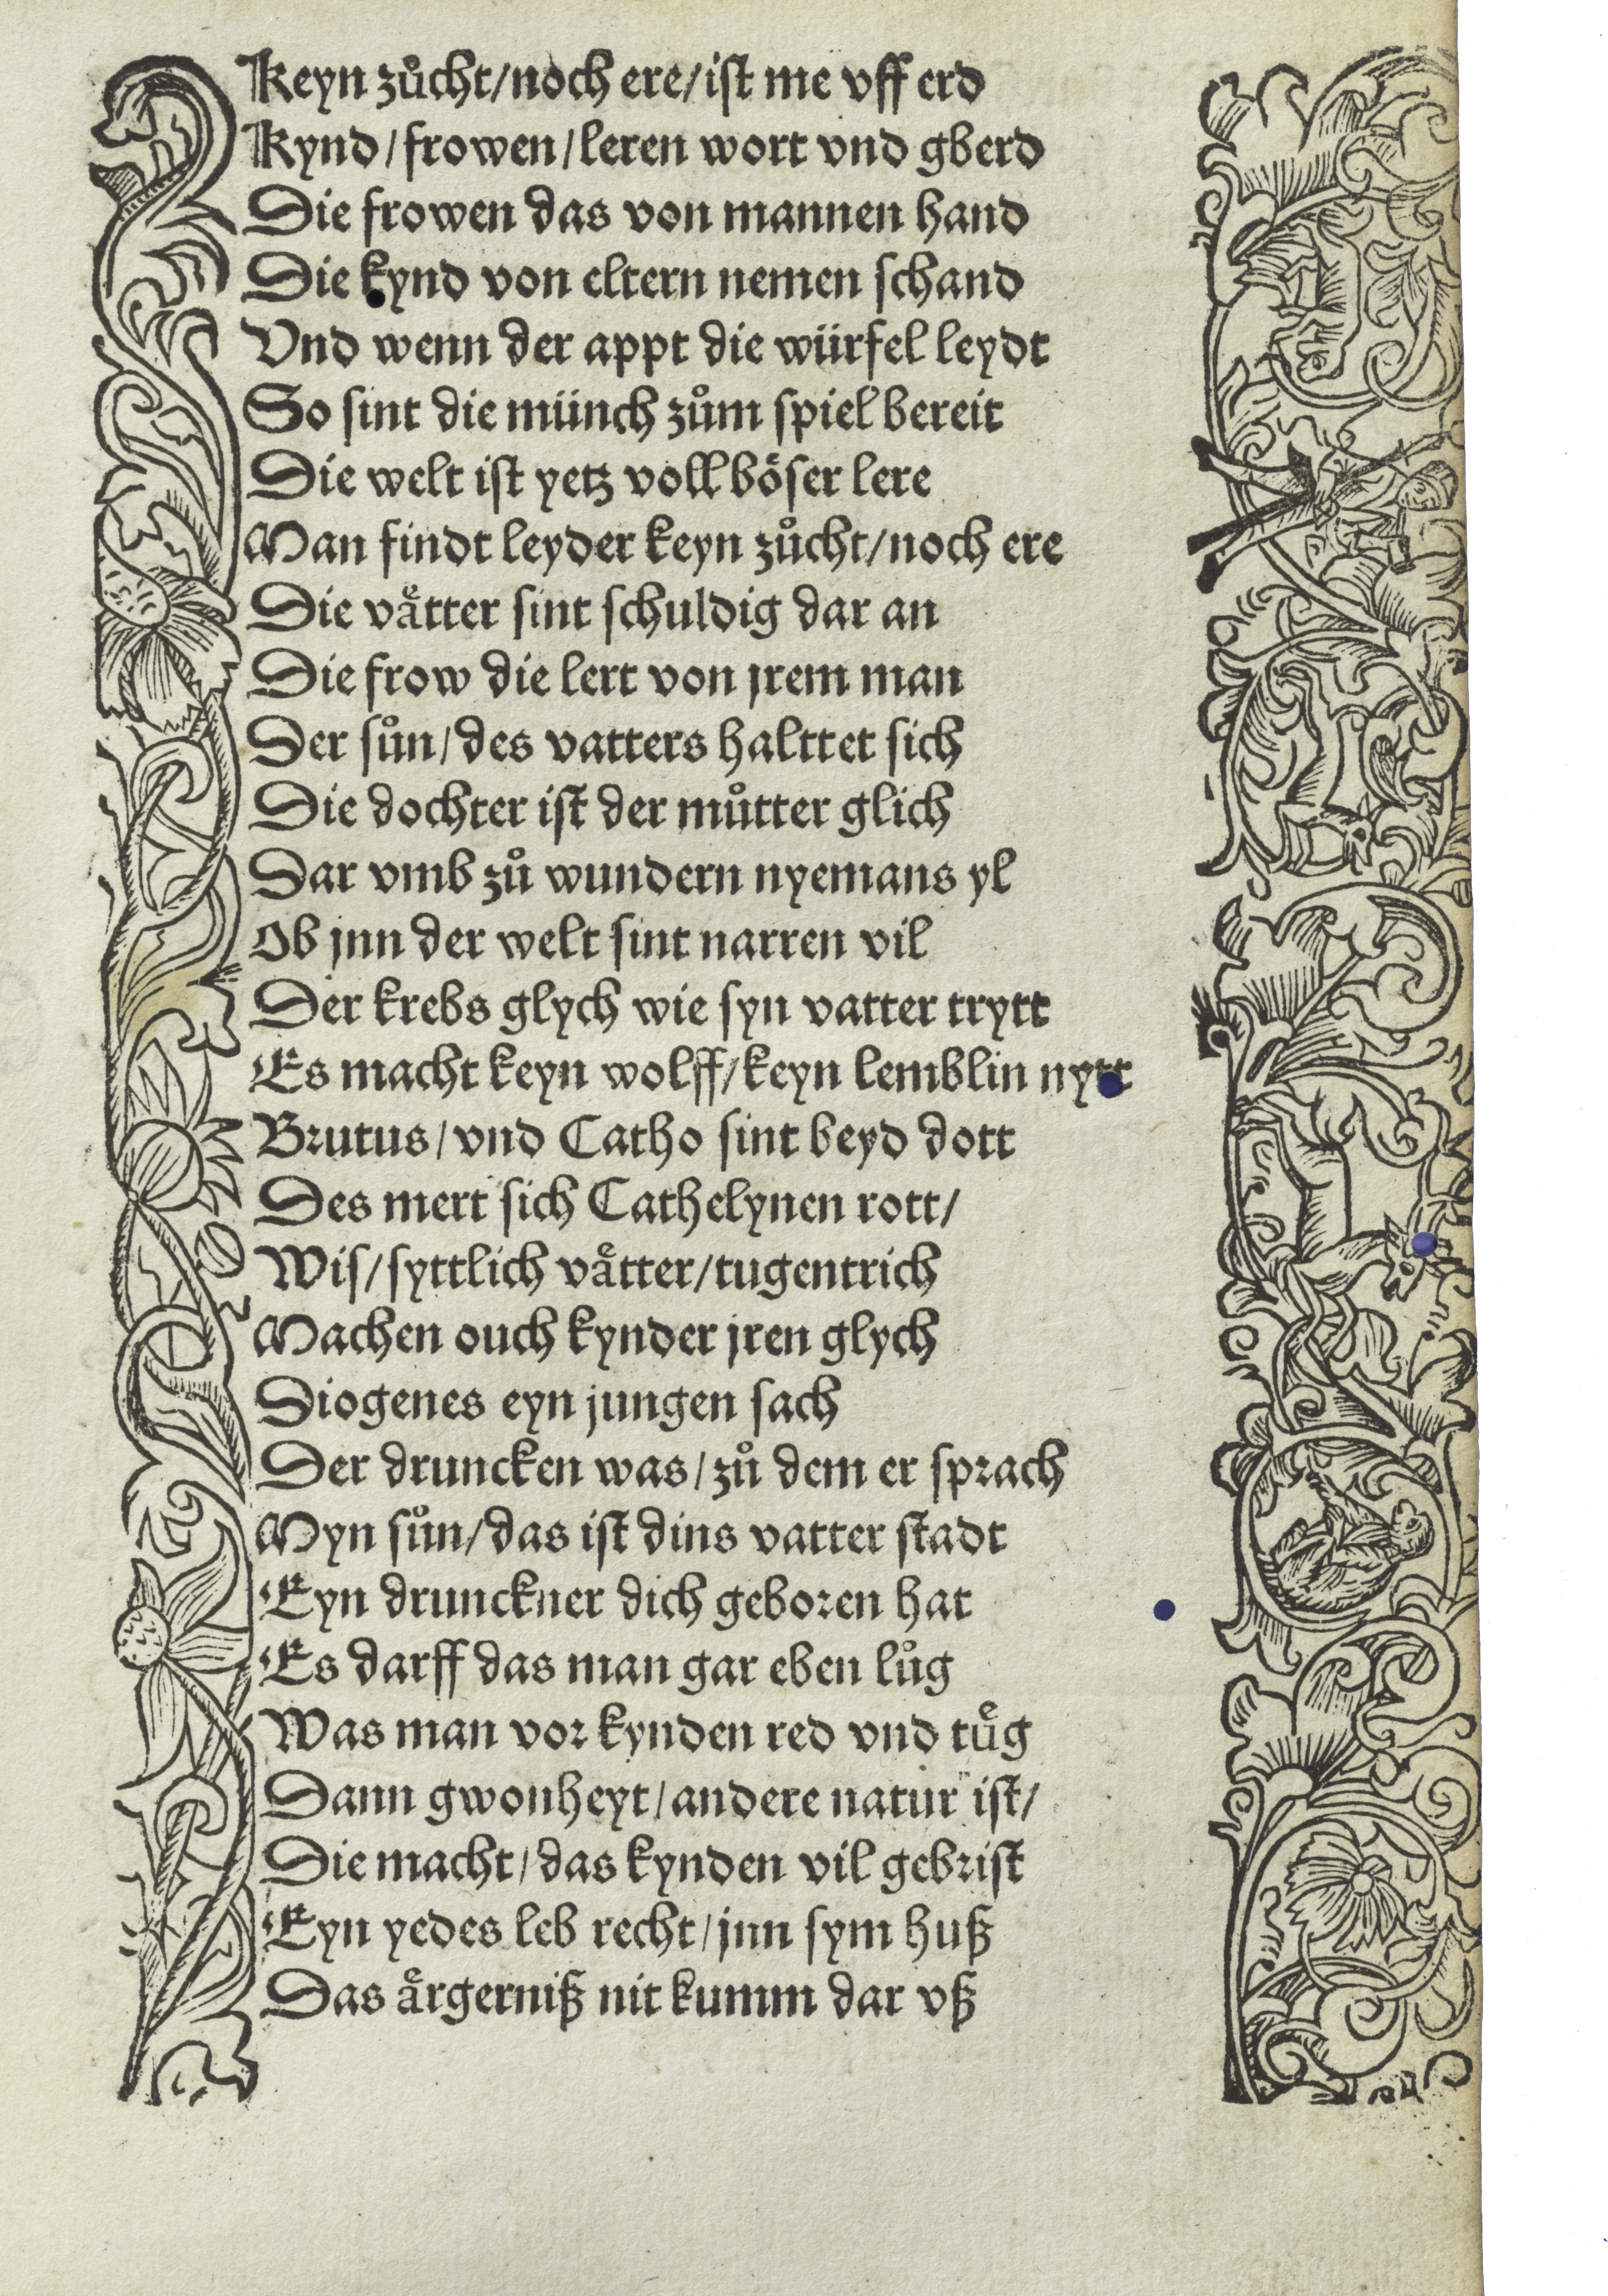 Keyn zuͦcht/noch ere/iſt me vff erd
Kynd/frowen/leren wort vnd gberd
Die frowen das von mannen hand
Die kynd von eltern nemen ſchand
Vnd wenn der appt die würfel leydt
So ſint die münch zuͦm ſpiel bereit
Die welt iſt yetz voll böſer lere
Man findt leyder keyn zuͦcht/noch ere
Die vaͤtter ſint ſchuldig dar an
Die frow die lert von jrem man
Der ſuͦn/des vatters halttet ſich
Die dochter iſt der muͦtter glich
Dar vmb zuͦ wundern nyemans yl
Ob jnn der welt ſint narren vil
Der krebs glych wie ſyn vatter trytt
Es macht keyn wolff/keyn lemblin nytt
Brutus/vnd Catho ſint beyd dott
Des mert ſich Cathelynen rott/
Wiſ/ſyttlich vaͤtter/tugentrich
Machen ouch kynder jren glych
Diogenes eyn jungen ſach
Der druncken was/zuͦ dem er ſprach
Myn ſuͦn/das iſt dins vatter ſtadt
Eyn drunckner dich geboren hat
Es darff das man gar eben luͦg
Was man vor kynden red vnd tuͤg
Dann gwonheyt/andere natur iſt/
Die macht/das kynden vil gebriſt
Eyn yedes leb recht/jnn ſym huß
Das aͤrgerniß nit kumm dar vß